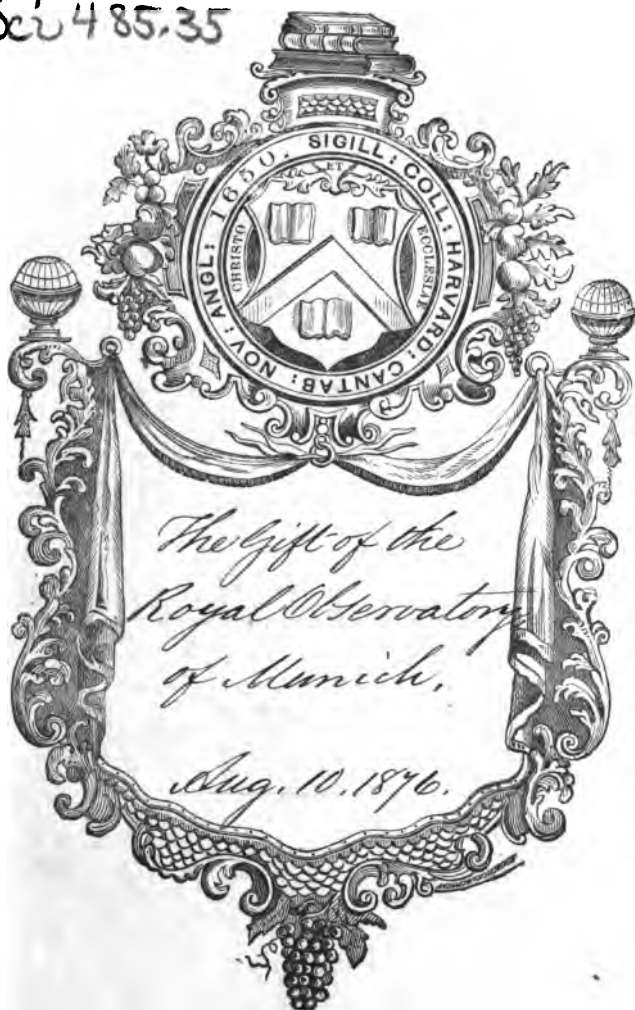 Sci 485.35
SIGILL: COLL: HARVARD: CANTAB: NOV: ANGL: 1650.
CHRISTO ET ECCLESIAE
The Gift of the
Royal Observatory
of Munich.
Aug. 10. 1876.